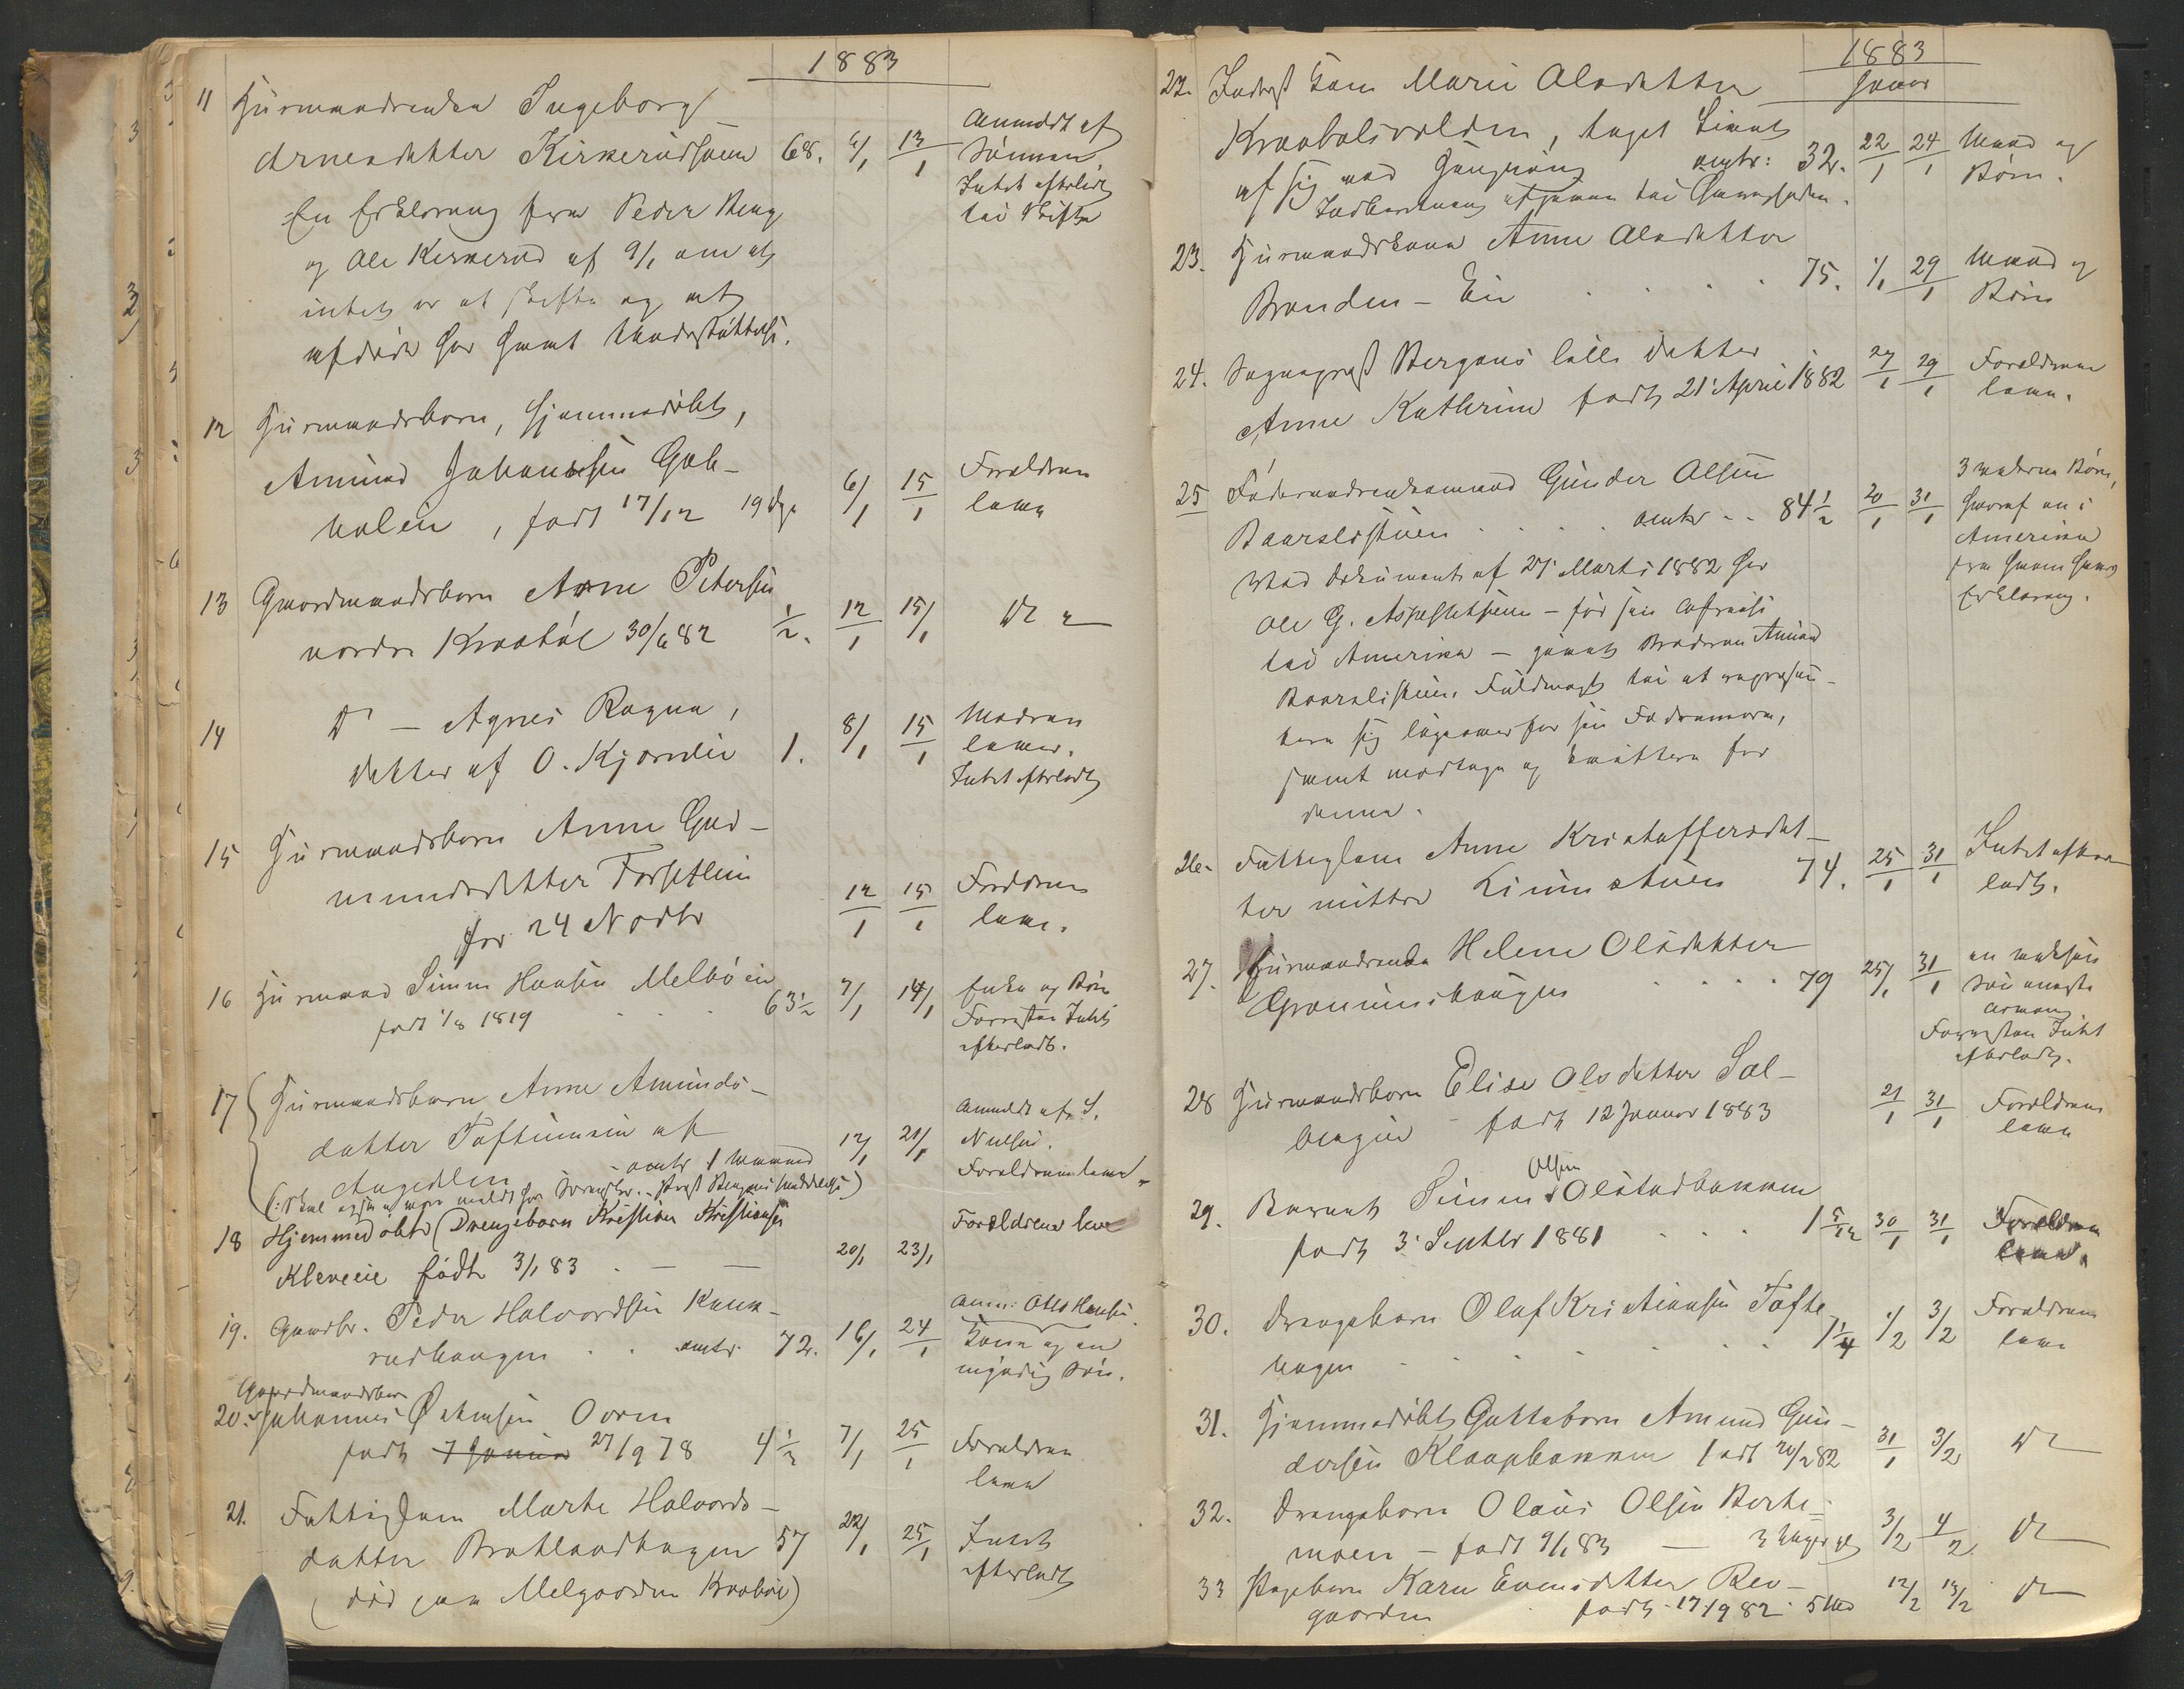 1883
11 Husmandsenke Ingeborg
Arnesdatter Kirkerudsveen 68. 6/1 13/1 Anmeldt af
Sønnen.
Intet efterladt
til Skifte
En Erklæring fra Peder Haug
og Ole Kirkerud af 9/1 om at
intet er at skifte og at
afdøde har havt Understøttelse.
12 Husmandsbarn, hjemmedøbt,
Amund Johansen Gah-
kolen, født 17/12 19 dge 6/1 15/1 Forældrene
leve
13 Gaardmandsbarn Arne Petersen
nordre Kraabøl 30/6 82 1/2. 12/1 15/1 Do
14 Do - Agnes Ragna,
datter af O. Kjørnlie 1. 8/1 15/1 Moderen
lever.
Intet efterladt
15 Husmandsbarn Anne Gud-
mundsdatter Forsetlien
før 24 Novbr 12/1 15/1 Forældrene
leve.
16 Husmand Simen Hansen Melbøein 63 1/2 7/1 14/1 Enke og Børn
født 1/8 1819 . . . Forresten Intet
efterladt.
17 Husmandsbarn Anne Amunds-
datter Toftimoein af
Augedlen omtr 1 Maaned 12/1 21/1 Anmeldt af S.
Nielsen.
Forældrene leve.
18 Hjemmedøbt Drengebarn Kristian Kristiansen
Kleveeie født 3/1 83 . — — 20/1 23/1 Forældrene leve
19. Gaardbr. Peder Halvordsen Kank-
rudhaugen . . omtr. 72. 16/1 24/1 Anm: Otto Hansen.
Kone og en
myndig Søn.
Gaardmandsbarn
20. Johannes Østensen Oven
født 7 Januar 27/9 78 4 1/2 7/1 25/1 Forældrene
leve
21. Fattiglem Marte Halvords-
datter Bratlandhagen 57 22/1 25/1 Intet
efterladt
(død paa Melgaarden Kraabøl)
1883
Januar
22. Inderst Kone Marie Olsdatter
Kraabølsvolden, taget Livet
af sig ved Hængning omtr: 32. 22/1 24/1 Mand og
Børn.
Indberetning afgiven til
23. Husmandskone Anne Olsdatter
Branden - Eie . . . . 75. 1/1 29/1 Mand og
Børn
24. Sogneprest Bergans lille datter
Anne Kathrine født 21 April 1882 27/1 29/1 Forældrene
leve.
25 Føderaadsenkemand Gunder Olsen
Baarslistuen . . . . omtr . . 84 1/2 20/1 31/1 3 voksne Børn,
hvoraf en i
Amerika
fra hvem haves
Erklæring.
Ved Dokument af 27 Marts 1882 har
Ole G. Aspesletsveen - før sin Afreise
til Amerika - givet Broderen Amund
Baarslistuen Fuldmagt til at repræsen-
tere sig ligeoverfor sin Fædrenearv,
samt modtage og kvittere for
denne.
26. Fattiglem Anne Kristoffersdat-
ter mittre Liumstuen 74. 25/1 31/1 Intet efter-
ladt.
27. Husmandsenke Helene Olsdatter
Grønnishaugen . . . . 79 25/1 31/1 en voksen
Søn eneste
Arving
Forresten Intet
efterladt.
28 Husmandsbarn Elise Olsdatter Sæl-
født 12 Januar 1883 21/1 31/1 Forældrene
leve
29. Barnet Simen Olsen Olstadbakken
født 3 Septbr 1881 . . . 1 5/12 30/1 31/1 Forældrene
leve.
30. Drengebarn Olaf Kristiansen Tofte
hagen . . . . . . 1 1/4 1/2 3/2 Forældrene
leve
31. Hjemmedøbt Guttebarn Amund Gun-
dersen Klaapbakken født 20/12 82 31/1 3/2 Do
32. Drengebarn Olaus Olsen Berte-
moen - født 9/1 83 — 3 Uger gl 3/2 4/2 Do
33 Pigebarn Karn Evensdatter Rev-
gaarden født 17/9 82 5 Md 12/2 13/2 Do